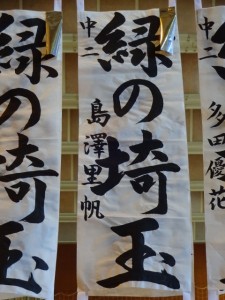 緑の埼玉
中二
多田優花
緑の埼玉
中二
島澤里帆
緑の埼玉